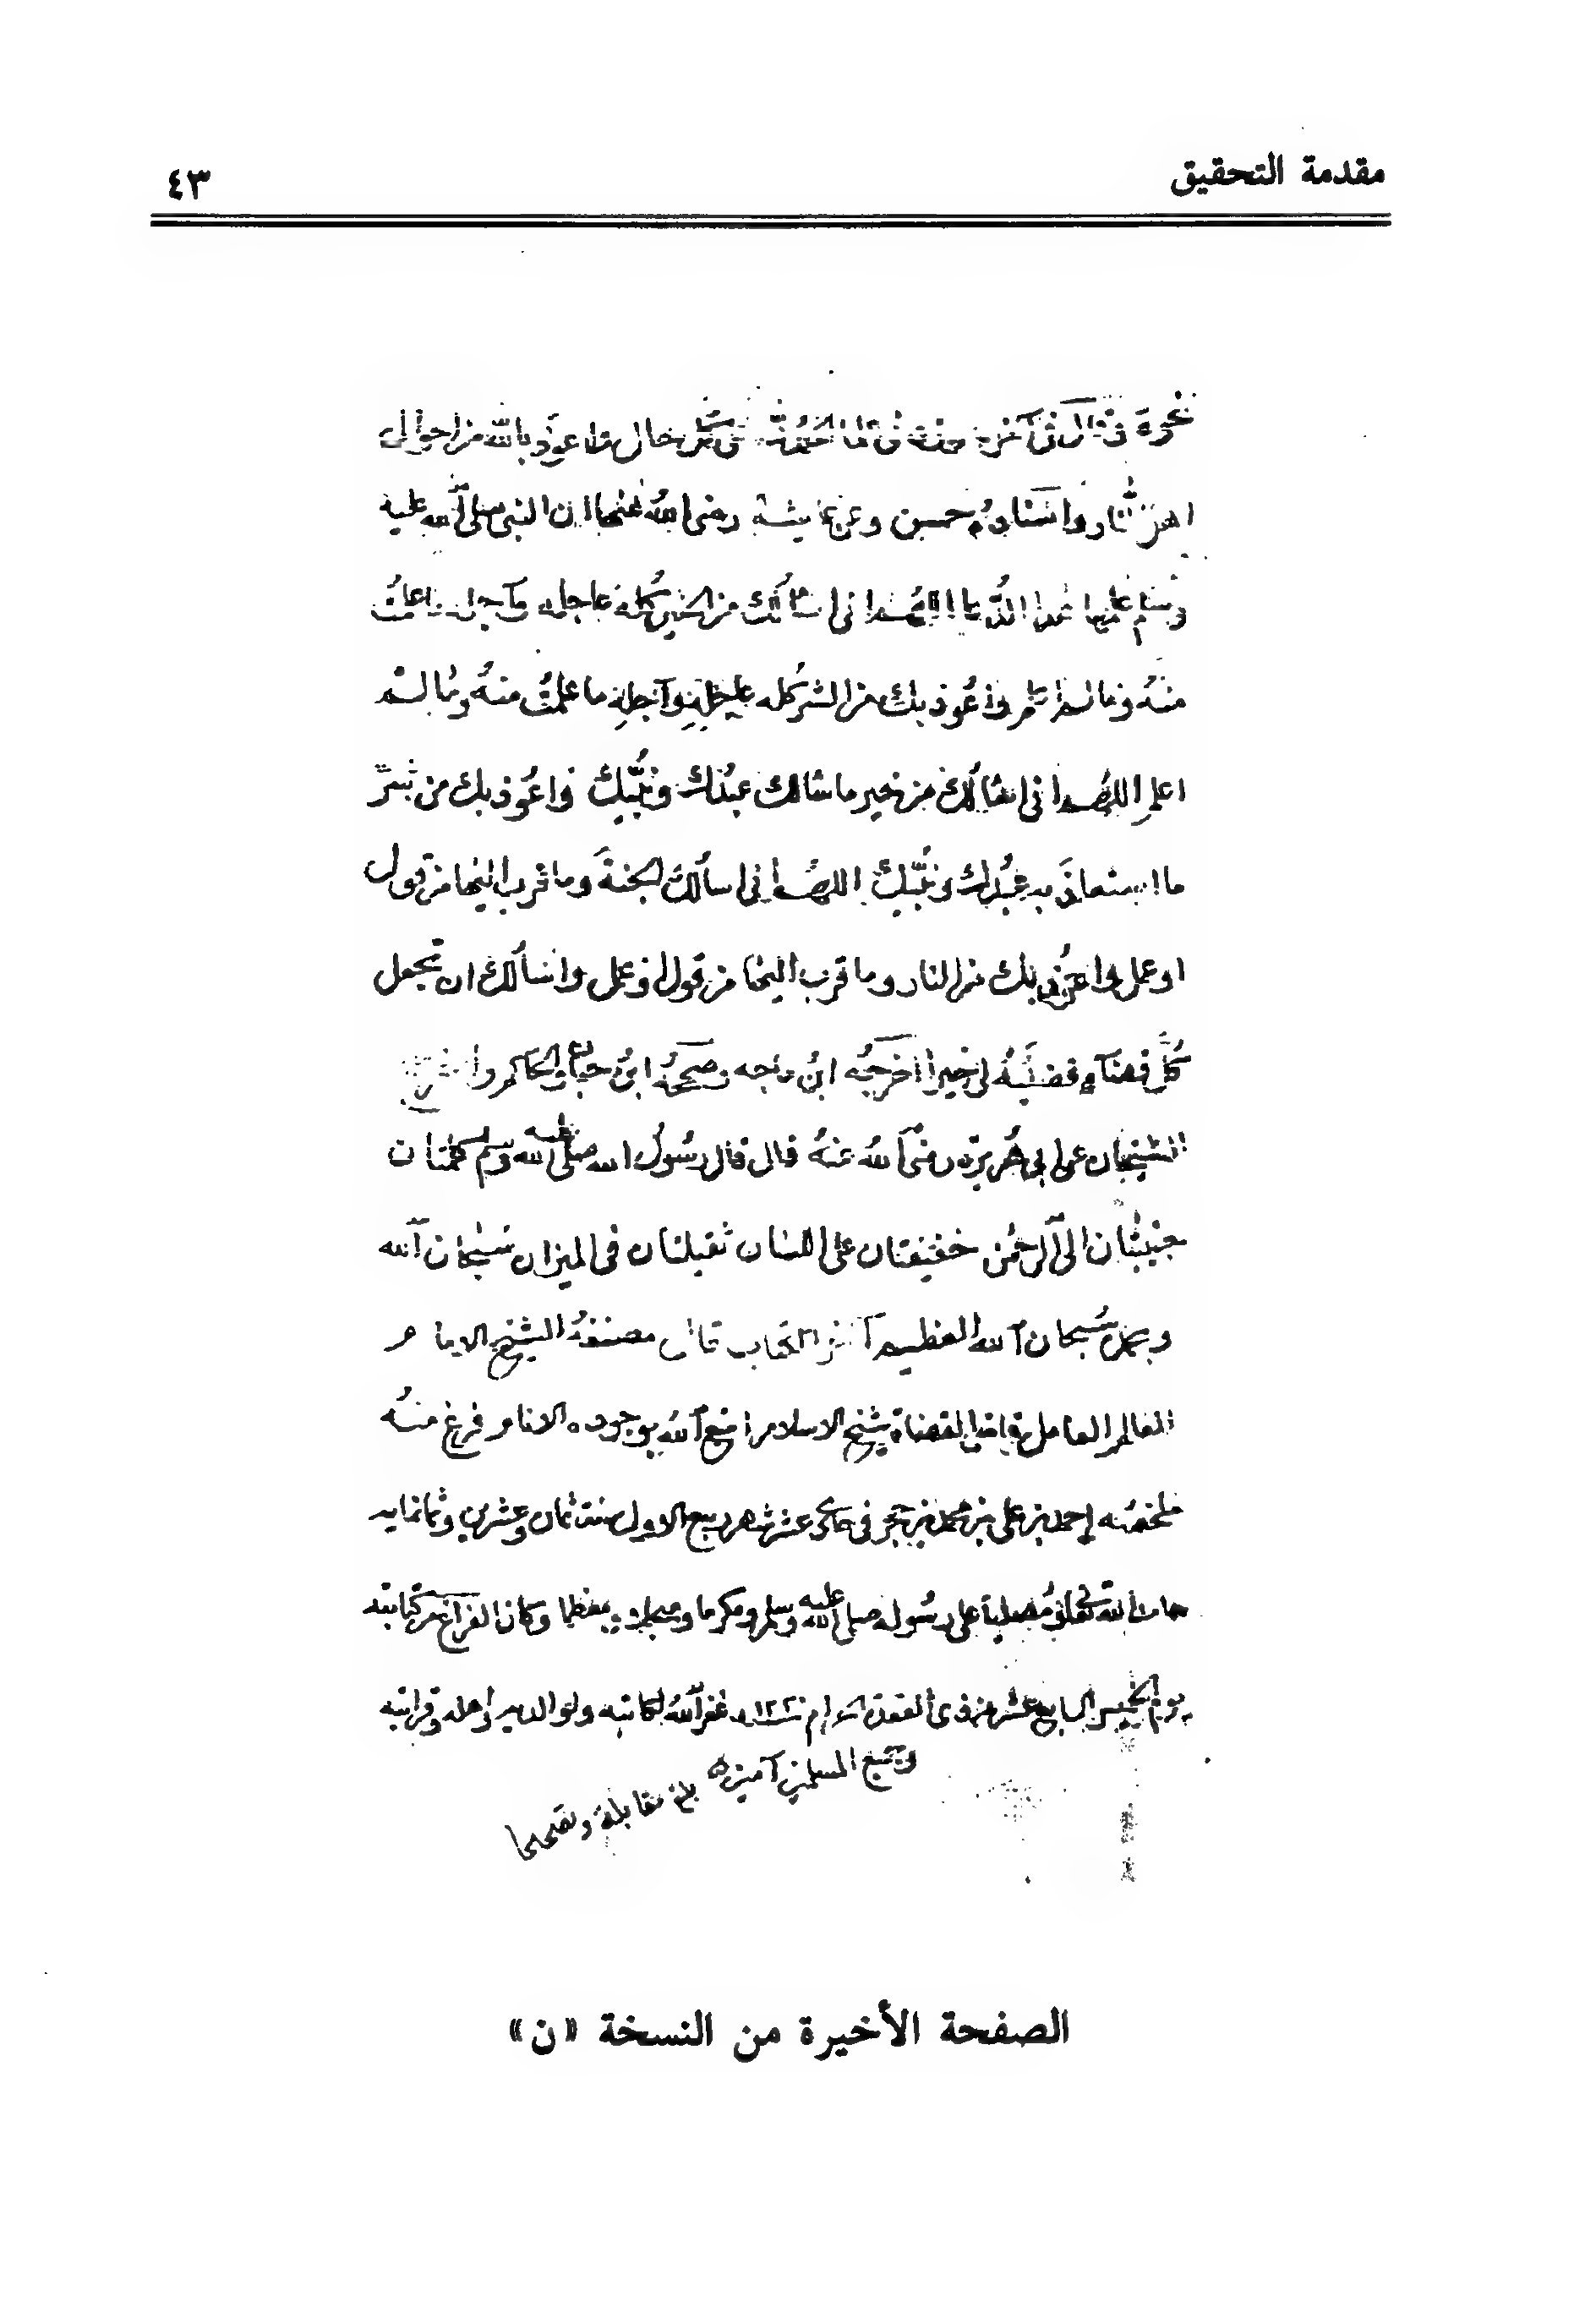 مقدمة التحقيق
٤٣
نحوه وقال في آخره وزدني علما الحمد لله على كل حال واعوذ بالله من احوال
اهل النار واسناده حسن وعن عايشة رضى الله عنها ان النبى صلى الله عليه
وسلم علمها هذا الدعا اللهم انى اسألك من الخير كله عاجله وآجله ما علمت
منه وما لم اعلم واعوذ بك من الشر كله عاجله وآجله ما علمت منه وما لم
اعلم اللهم انى اسألك من خير ما سالك عبدك ونبيك واعوذ بك من شر
ما استعاذ به عبدك ونبيك اللهم انى اسألك الجنة وما قرب اليها من قول
او عمل واعوذ بك من النار وما قرب اليها من قول او عمل واسألك ان تجعل
كل قضآء قضيته لى خيرا اخرجه ابن ماجه وصححه ابن حبان والحاكم واخرج
الشيخان عن ابى هريرة رضى الله عنه قال قال رسول الله صلى الله عليه وسلم كلمتان
حبيبتان الى الرحمن خفيفتان على اللسان ثقيلتان فى الميزان سبحان الله
وبحمده سبحان الله العظيم آخر الكتاب قال مصنفه الشيخ الامام
العالم العامل قاضى القضاة شيخ الاسلام امتع الله بوجوده الانام فرغ منه
ملخصه احمد بن على بن محمد بن حجر فى حادى عشر شهر ربيع الاول سنة ثمان وعشرين وثمانمايه
حامدا لله تعالى ومصليا على رسوله صلى الله عليه وسلم ومكرما ومبجلا ومعظما وكان الفراغ من كتابته
يوم الخميس السابع عشر من ذى القعدة الحرام غفر الله لكاتبه ولوالديه واهله وقرابته
وجميع المسلمين آمين بلغ مقابلة وتصحيحا
الصفحة الأخيرة من النسخة «ن»